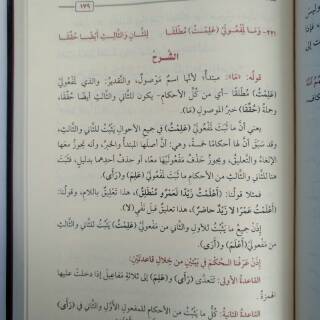 ١٧٩
٢٢١- وَمَا لِمَفْعُولَيْ (عَلِمْتُ) مُطْلَقَا لِلثَّانِ وَالثَّالِثِ أَيْضًا حُقِّقَا
الشَّرْحُ
قولُه: «مَا»: مبتدأٌ، لأنَّها اسمٌ مَوْصولٌ، والتَّقديرُ: والذي لِمَفْعُولَيْ
(عَلِمْتُ) مُطْلَقًا -أي من كلِّ الأحكامِ- يكون للثَّاني والثَّالثِ أيضًا حُقِّقَا،
وجملةُ (حُقِّقَا) خبرُ الموصولِ (مَا).
يعني أنَّ ما ثَبَتَ لمَفْعُولَيْ (عَلِمْتُ) في جميعِ الأحوالِ يَثْبُتُ للثَّاني والثَّالثِ،
وقد سَبَقَ أنَّ لها أحكامًا خمسةً، وهي: أنَّ أصلَهما المبتدأُ والخبرُ، وأنه يجوزُ معها
الإلغاءُ والتَّعليقُ، ويجوزُ حَذْفُ مَفْعُولَيْها معًا، أو حذفُ أحدِهما بدليلٍ، فثبَتَ
هنا للثَّاني والثَّالثِ من الأحكامِ ما ثَبَتَ لمَفْعُولَيْ (عَلِمَ) و(رَأَى).
فمثلًا قولُنا: (أَعْلَمْتُ زَيْدًا لَعَمْرٌو مُنْطَلِقٌ)، هذا تعليقٌ باللامِ، وقولُنا:
(أَعْلَمْتُ عَمْرًا لا زَيْدٌ حاضرٌ)، هذا تعليقٌ قبلَ نفيِ (لا).
إذَنْ جميعُ ما يَثْبُتُ للأولِ والثَّاني من مفعولَيْ (عَلِمَ) و(رَأَى) يَثْبُتُ للثَّاني والثَّالثِ
من مَفْعُولَيْ (أَعْلَمَ) و(أَرَى).
إِذَنْ عَرَفْنا الحُكْمَ في بَيْتَيْنِ من خِلالِ قاعدتَيْنِ:
القاعدةُ الأولى: تَتَعدَّى (رَأَى) و(عَلِمَ) إلى ثلاثةِ مفاعيلَ إذا دخلَتْ عليها
الهمزةُ.
القاعدةُ الثَّانيةُ: كلُّ ما يَثْبُتُ من الأحكامِ للمفعولِ الأوَّلِ والثَّاني في (رَأَى)